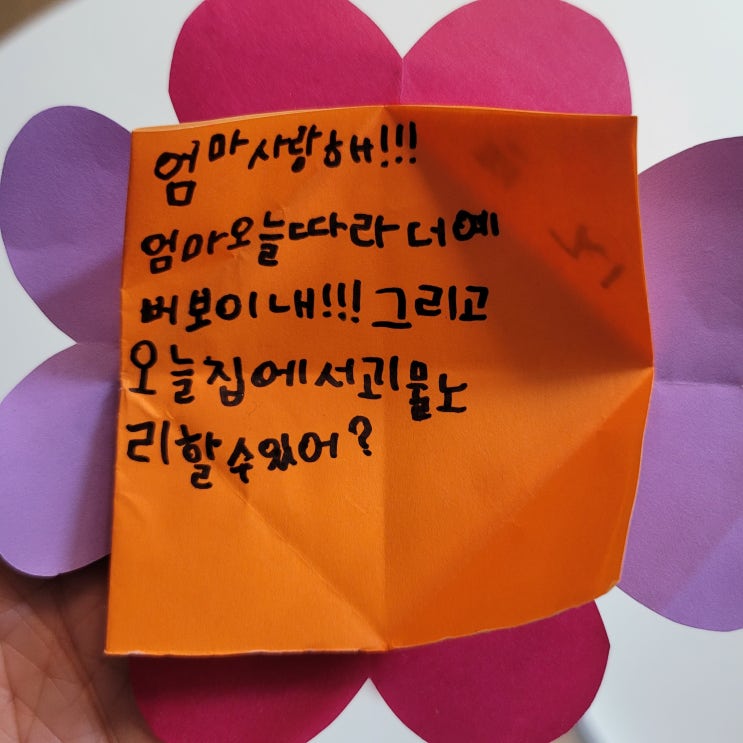 엄마사랑해!!!
엄마오늘따라더예
버보이내!!!그리고
오늘집에서괴물노
리할수있어?